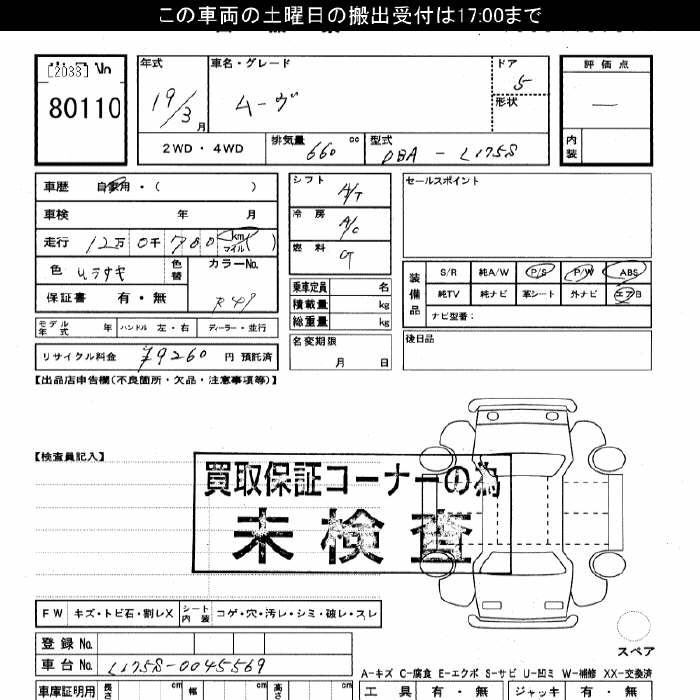 この車両の土曜日の搬出受付は17:00まで
[2033] No
80110
年式
19/3 月
車名・グレード
ムーヴ
ドア
5
形状
評価点
—
内装
2WD・4WD
排気量 660 cc
型式 DBA - L175S
車歴 自家用・( )
車検 年 月
走行 12万0千780 km マイル ( )
色 ムラサキ
色替
カラーNo.
保証書 有・無
モデル年式 年 ハンドル 左・右 ディーラー・並行
リサイクル料金 ¥9260 円 預託済
シフト A/T
冷房 A/C
燃料
乗車定員 名
積載量 kg
総重量 kg
名変期限
月 日
セールスポイント
装備品
S/R 純A/W P/S P/W ABS
純TV 純ナビ 革シート 外ナビ エアB
ナビ型番:
後日品
【出品店申告欄(不良箇所・欠品・注意事項等)】
【検査員記入】
買取保証コーナーの為
未検査
FW キズ・トビ石・割レX シート内装 コゲ・穴・汚レ・シミ・破レ・スレ
スペア
登録No.
車台No. L175S-0045569
A-キズ C-腐食 E-エクボ S-サビ U-凹ミ W-補修 XX-交換済
車庫証明用 長さ cm 幅 cm 高さ cm
工具 有・無 ジャッキ 有・無